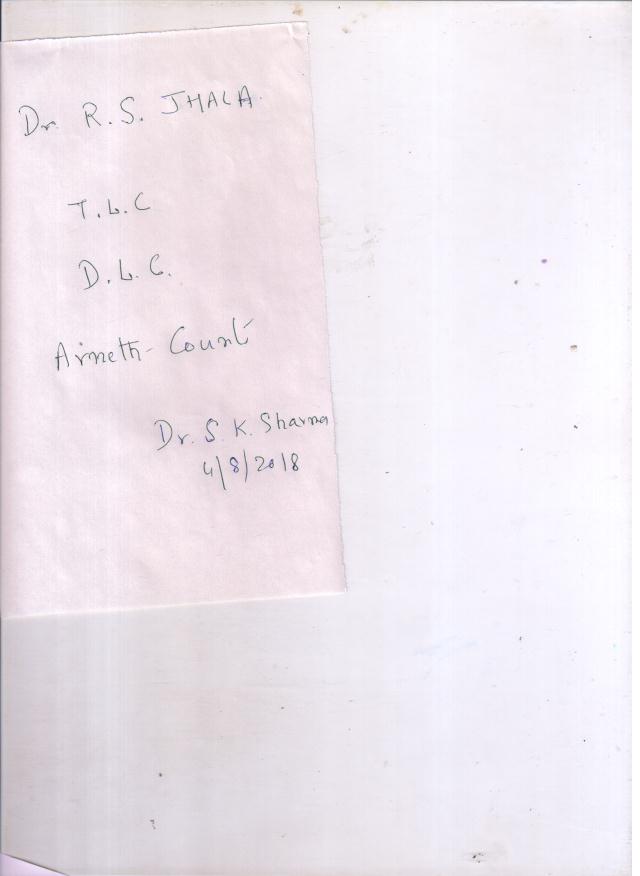 Dr. R.S. JHALA
T.L.C
D.L.C.
Arneth Count
Dr. S. K. Sharma
4/8/2018